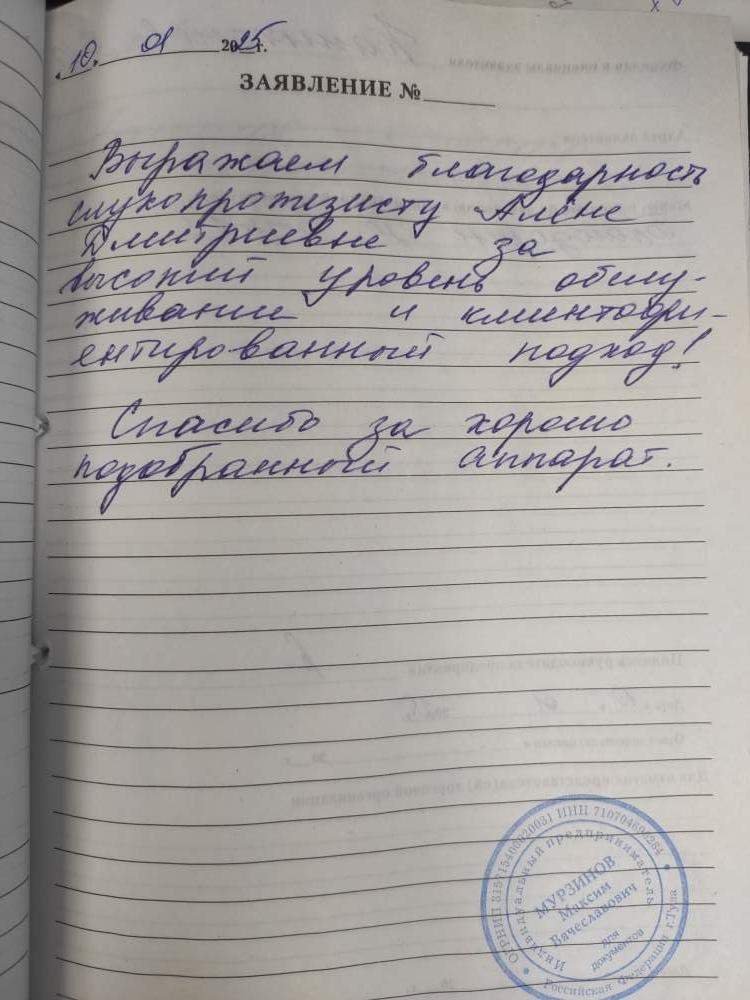 10. 01 2025г.
ЗАЯВЛЕНИЕ №
Выражаем благодарность
слухопротезисту Алёне
Дмитриевне за
высокий уровень обслу-
живание и клиентоори-
ентированный подход!
Спасибо за хорошо
подобранный аппарат.
ИНН
ОГРНИП
Индивидуальный предприниматель
МУРЗИНОВ
Максим
Вячеславович
для
документов
Российская Федерация г.Тула